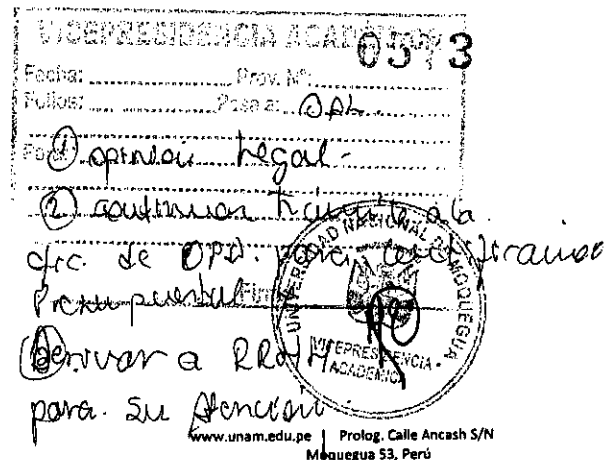 VICEPRESIDENCIA ACADÉMICA
Fecha: Prov. Nº:
Folios: Pase a: OAL
Para:
① opinión legal -
② continuar trámite a la
ofc. de OPD. para certificación
Presupuestal
③ Derivar a RRHH
para su Atención.
UNIVERSIDAD NACIONAL DE MOQUEGUA
VICEPRESIDENCIA
ACADÉMICA
www.unam.edu.pe | Prolog. Calle Ancash S/N
Moquegua 53, Perú